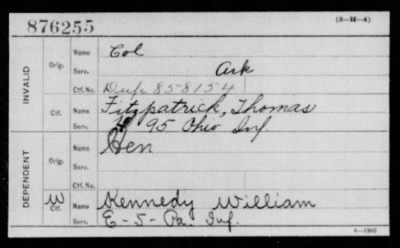 876255 (3-H-4)
INVALID
Orig. Name Col
Serv. Ark
Ctf. No. Dup 858154
Ctf. Name Fitzpatrick, Thomas
Serv. H 95 Ohio Inf.
DEPENDENT
Orig. Name Hen
Serv.
Ctf. No.
W
Ctf. Name Kennedy William
Serv. E-5-Pa. Inf.